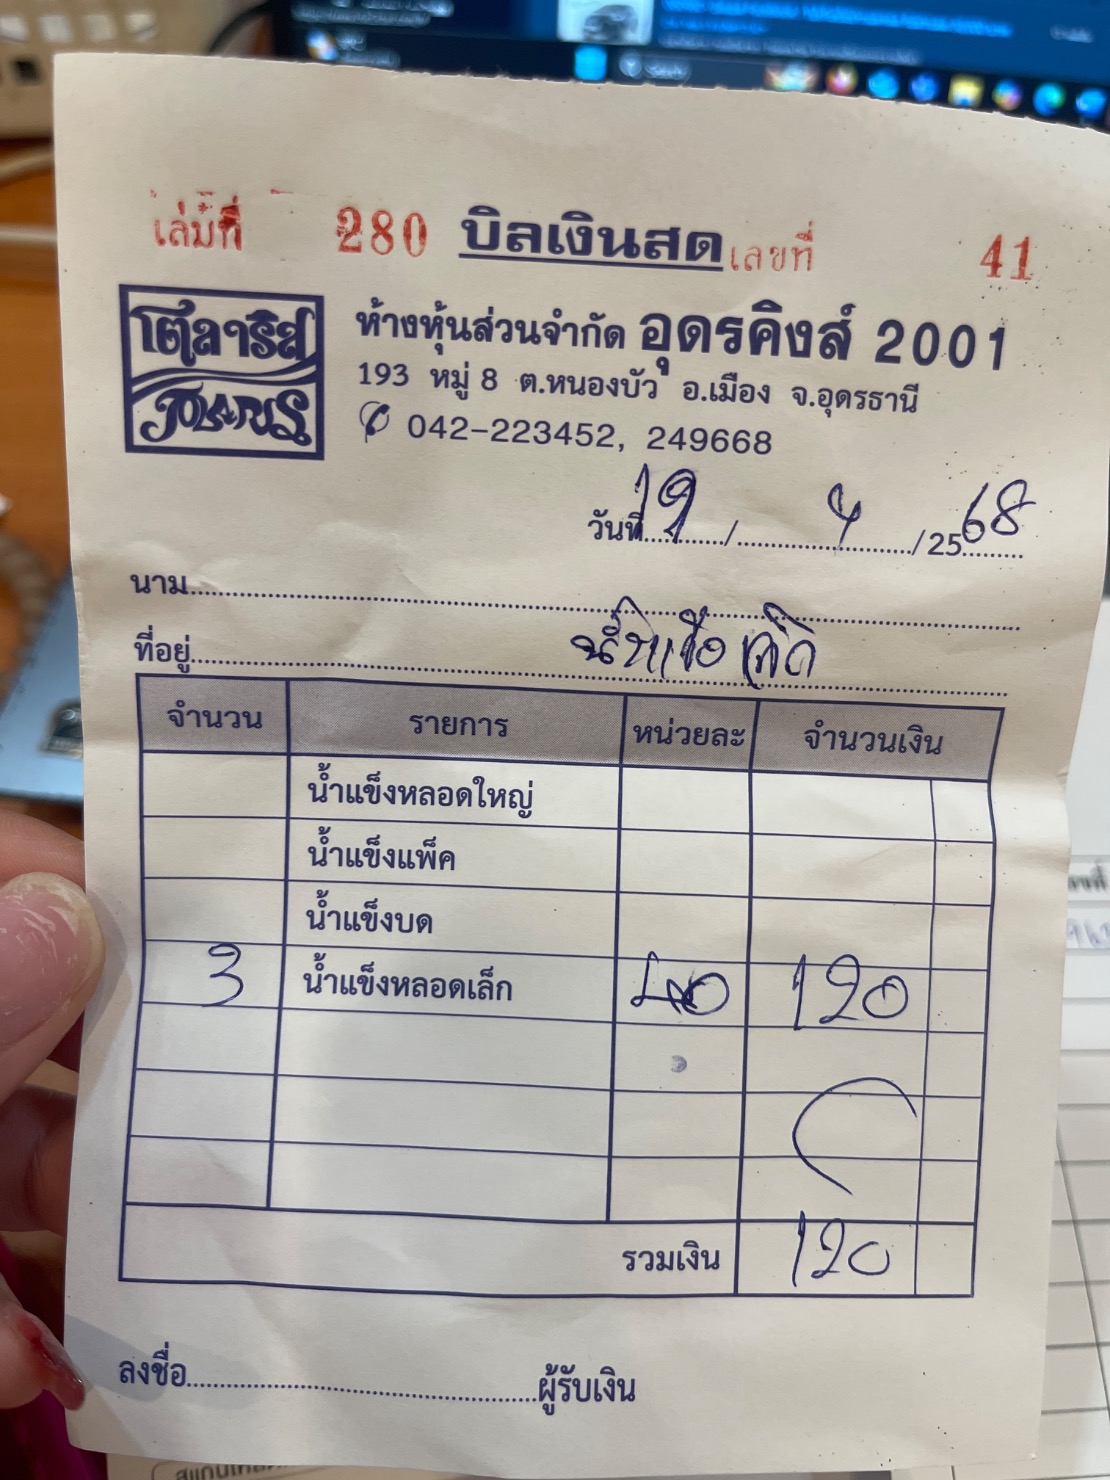 เล่มที่ 280 บิลเงินสด เลขที่ 41
โตลาริส
POLARIS
ห้างหุ้นส่วนจำกัด อุดรคิงส์ 2001
193 หมู่ 8 ต.หนองบัว อ.เมือง จ.อุดรธานี
042-223452, 249668
วันที่ 19 / 4 / 2568
นาม
ที่อยู่
จำนวน รายการ หน่วยละ จำนวนเงิน
น้ำแข็งหลอดใหญ่
น้ำแข็งแพ็ค
น้ำแข็งบด
3 น้ำแข็งหลอดเล็ก 40 120
รวมเงิน 120
ลงชื่อ ผู้รับเงิน